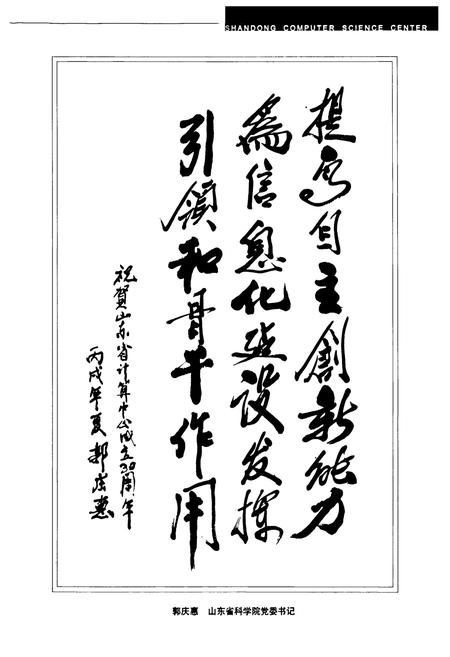 SHANDONG COMPUTER SCIENCE CENTER
提高自主創新能力
為信息化建设发揮
引領和骨干作用
祝賀山东省计算中心成立30周年
丙戌年夏 郭庆惠
郭庆惠 山东省科学院党委书记